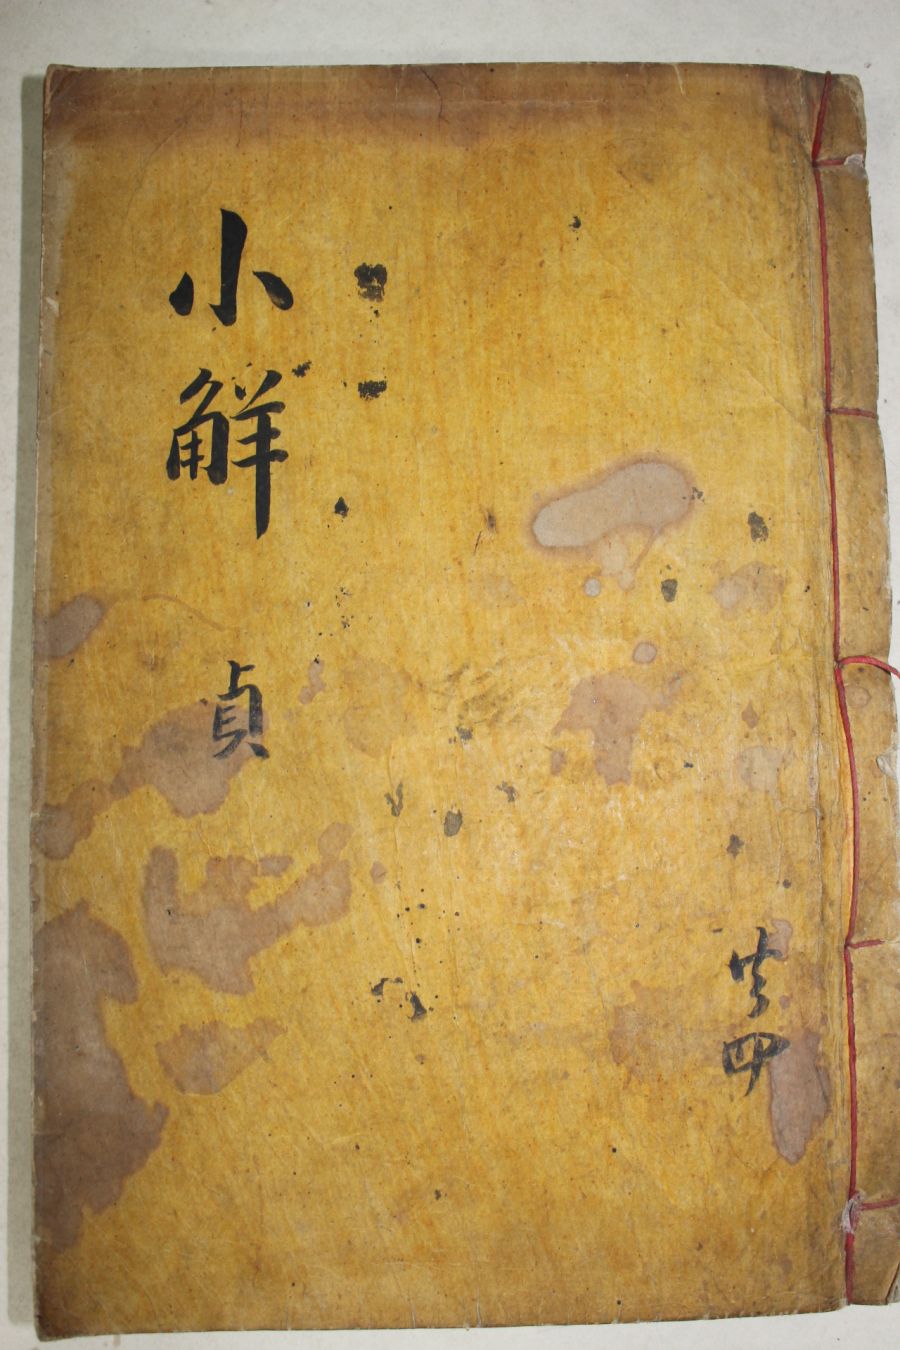 小觧 貞
共四